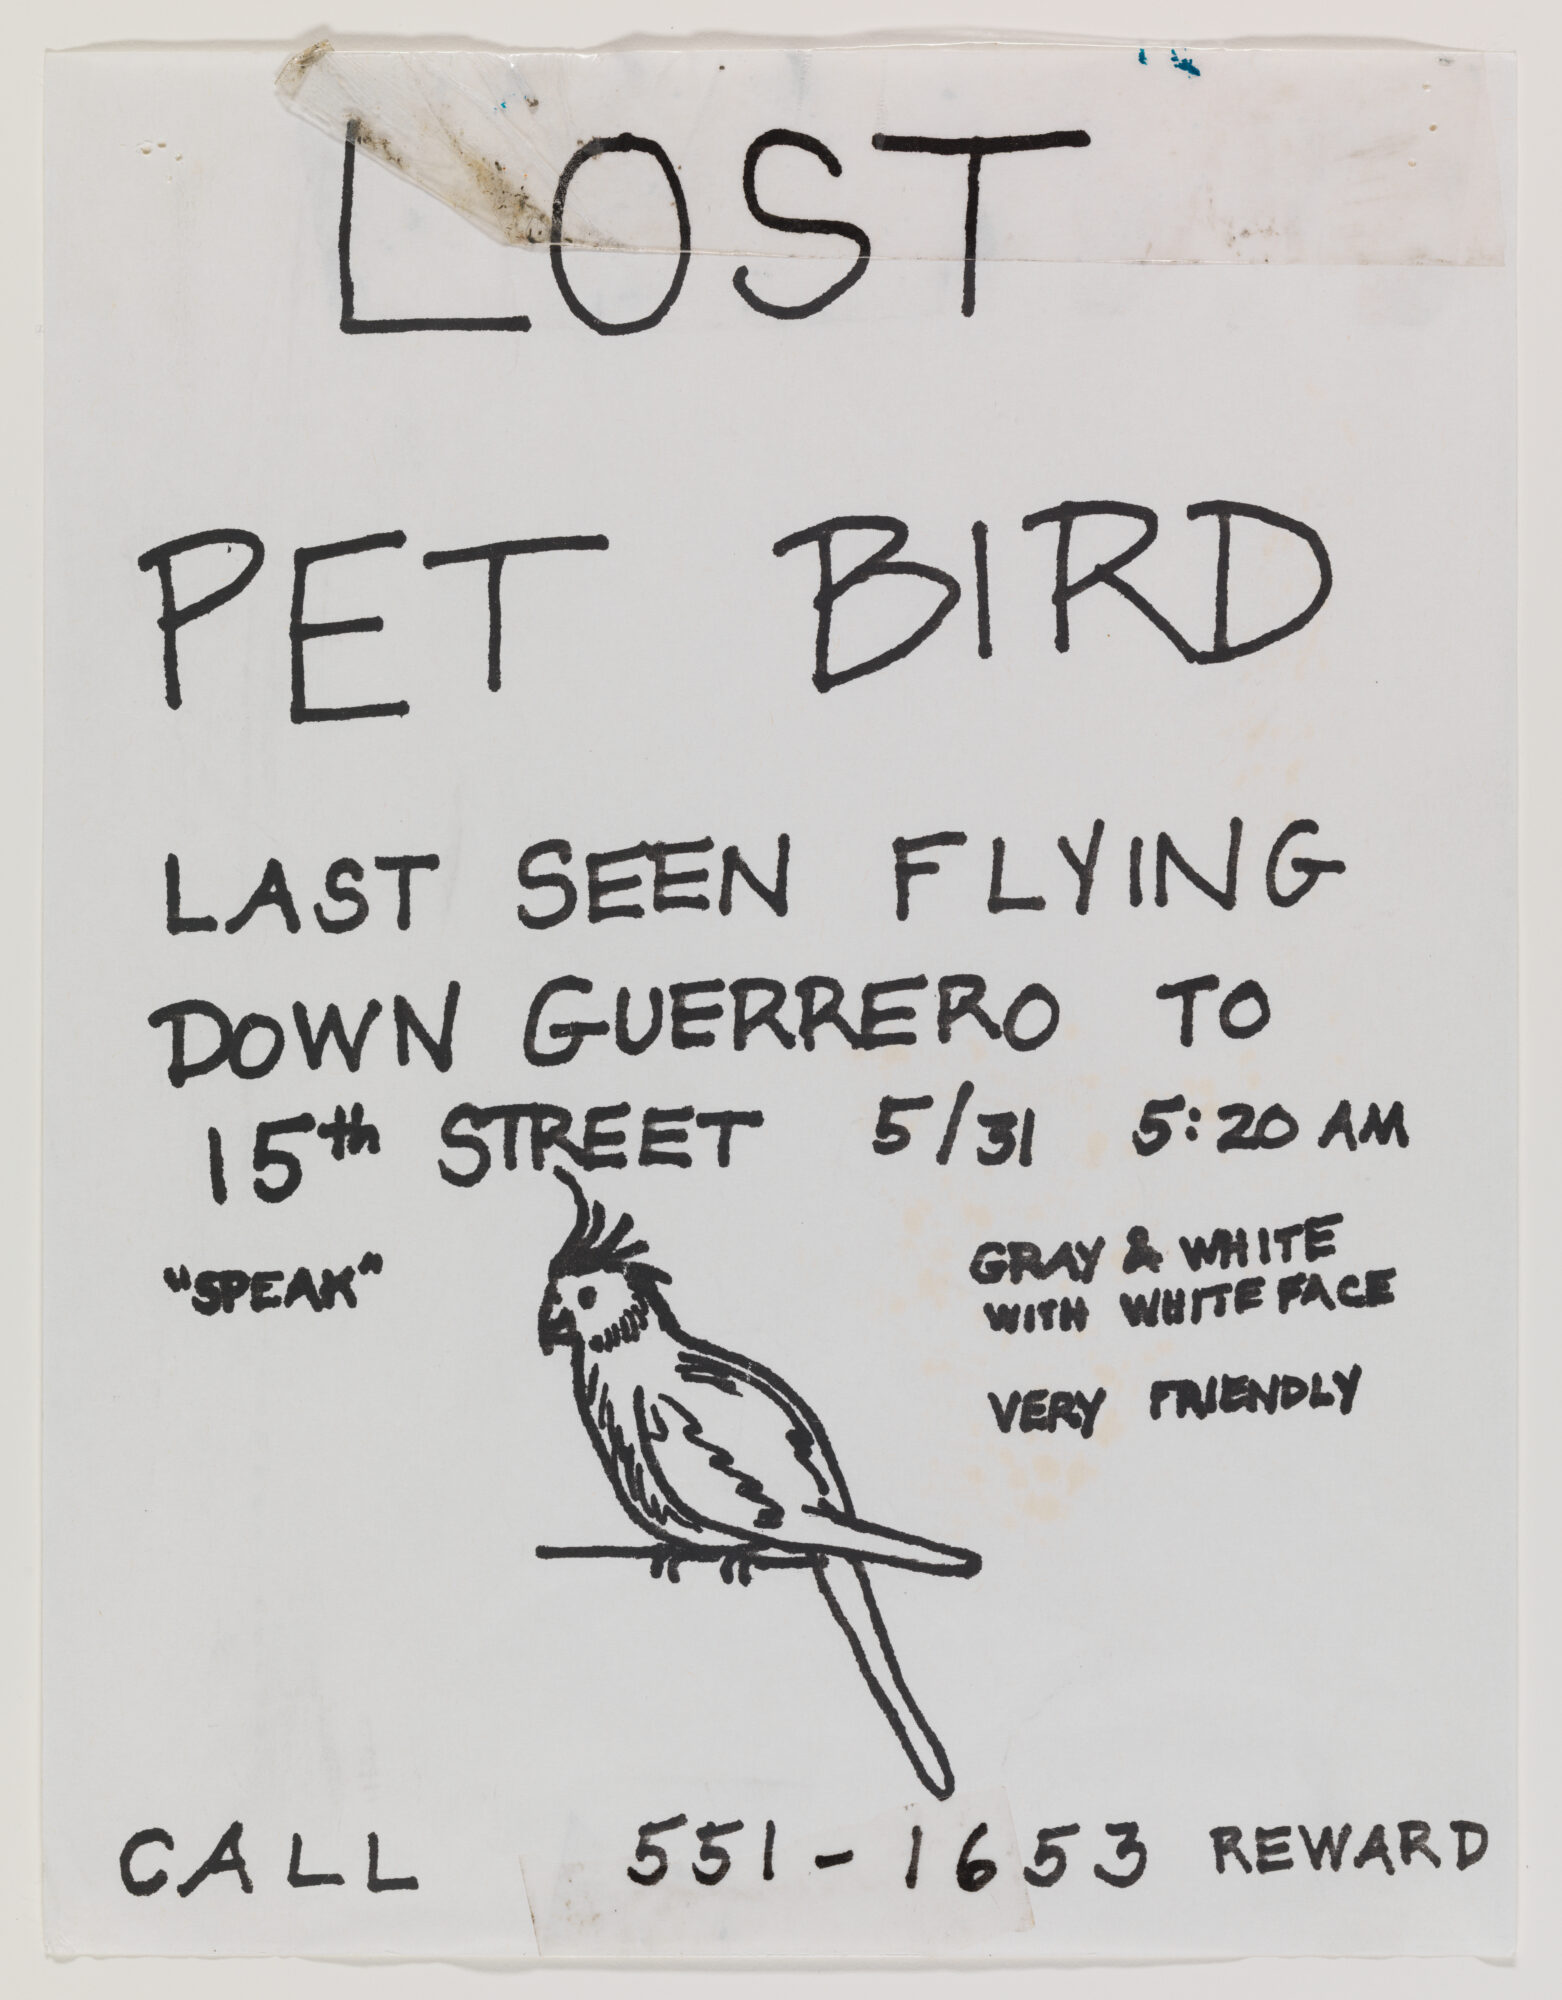 LOST
PET BIRD
LAST SEEN FLYING
DOWN GUERRERO TO
15th STREET 5/31 5:20 AM
"SPEAK"
GRAY & WHITE
WITH WHITE FACE
VERY FRIENDLY
CALL 551-1653 REWARD